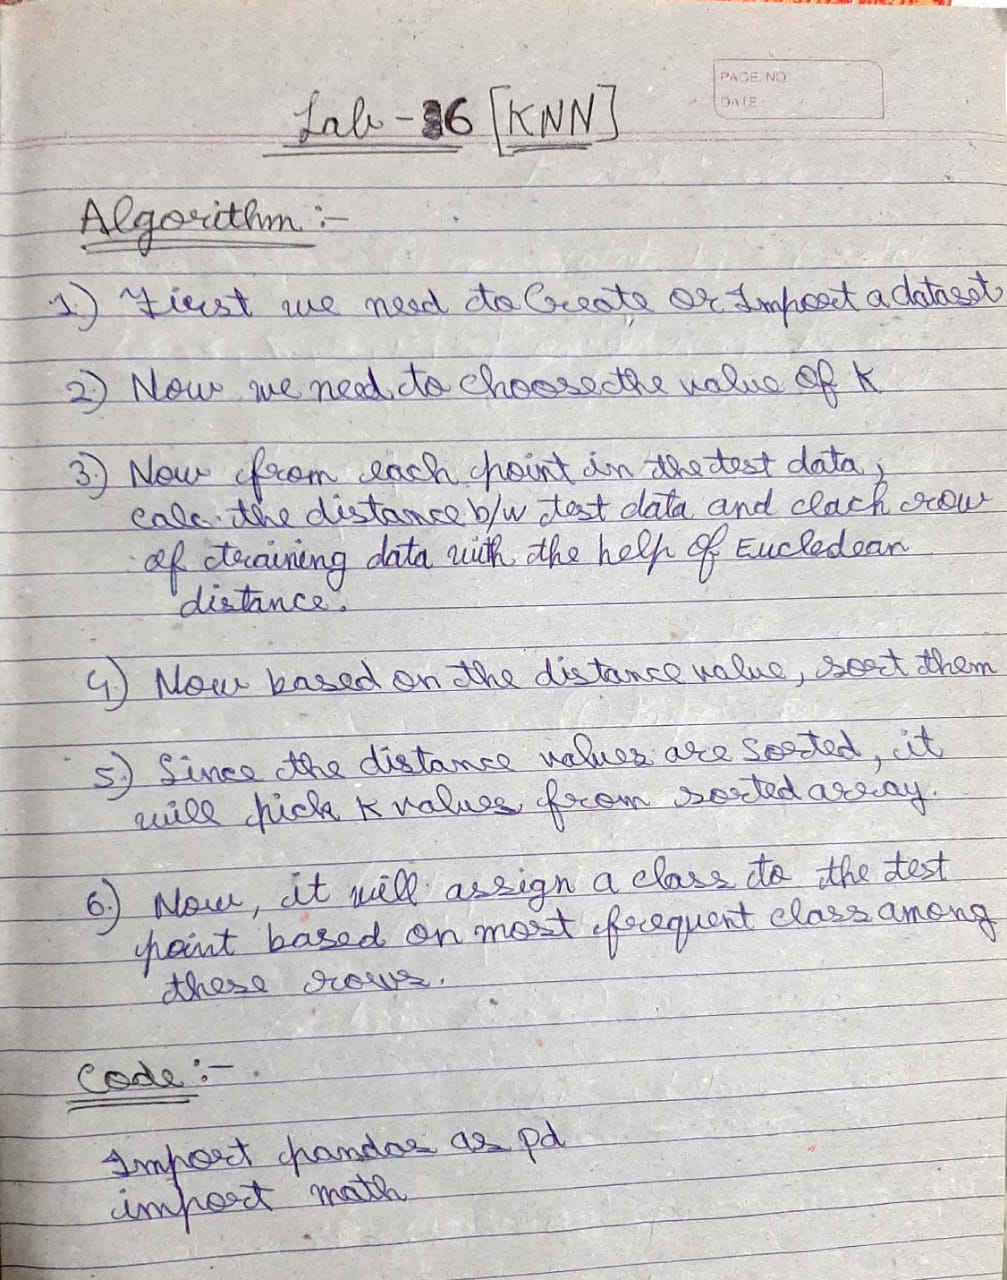 PAGE NO
DATE
Lab - 6 [KNN]
Algorithm :-
1.) First we need to Create or Import a dataset
2.) Now we need to choose the value of K
3.) Now from each point in the test data,
calc. the distance b/w test data and each row
of training data with the help of Eucledean
distance.
4.) Now based on the distance value, sort them
5.) Since the distance values are sorted, it
will pick K values from sorted array.
6.) Now, it will assign a class to the test
point based on most frequent class among
these rows.
Code :-
Import pandas as pd
import math